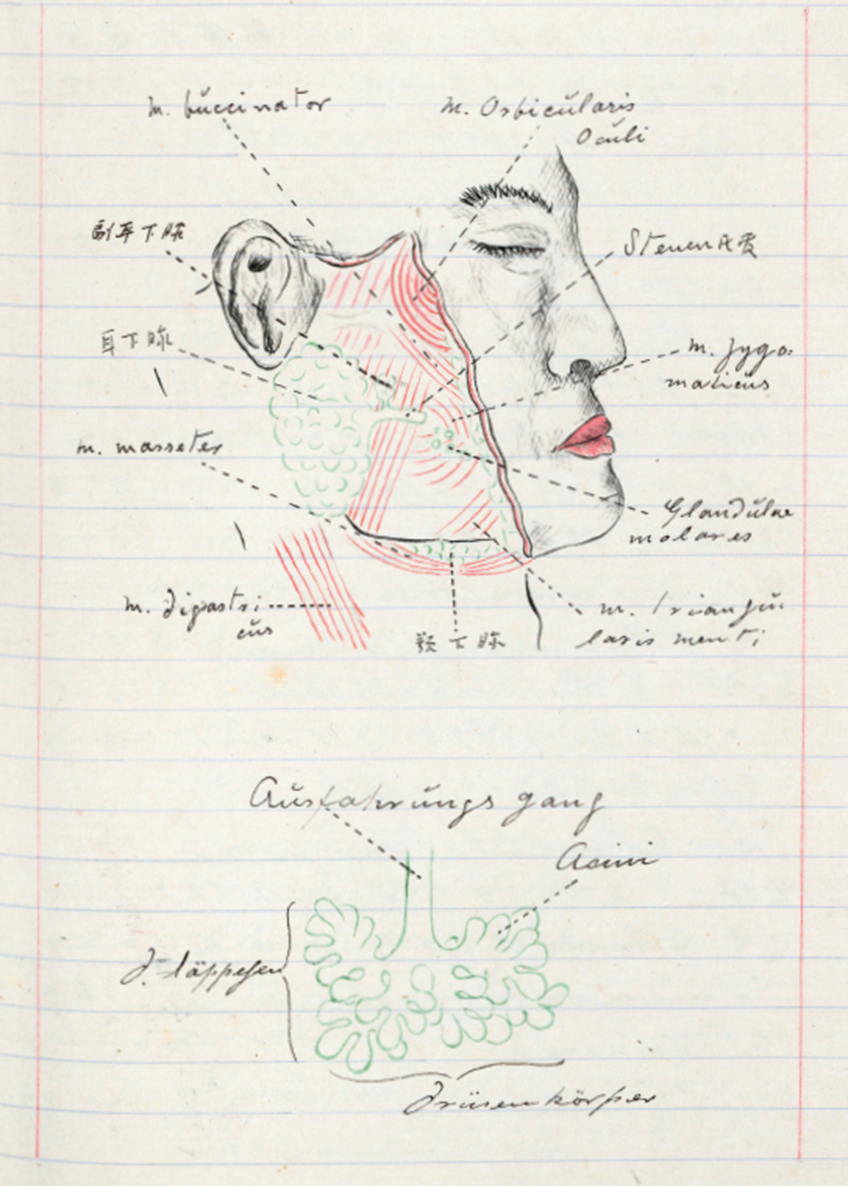 m. buccinator
m. Orbicularis
Oculi
副耳下腺
Stenon氏管
耳下腺
m. zygo-
maticus
m. masseter
Glandulae
molares
m. digastri-
cus
顎下腺
m. triangu-
laris menti
Ausfahrungs gang
Acini
D. läppchen
Drüsenkörper